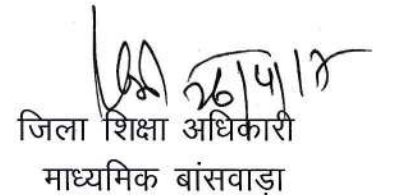 26/4/18
जिला शिक्षा अधिकारी
माध्यमिक बांसवाड़ा